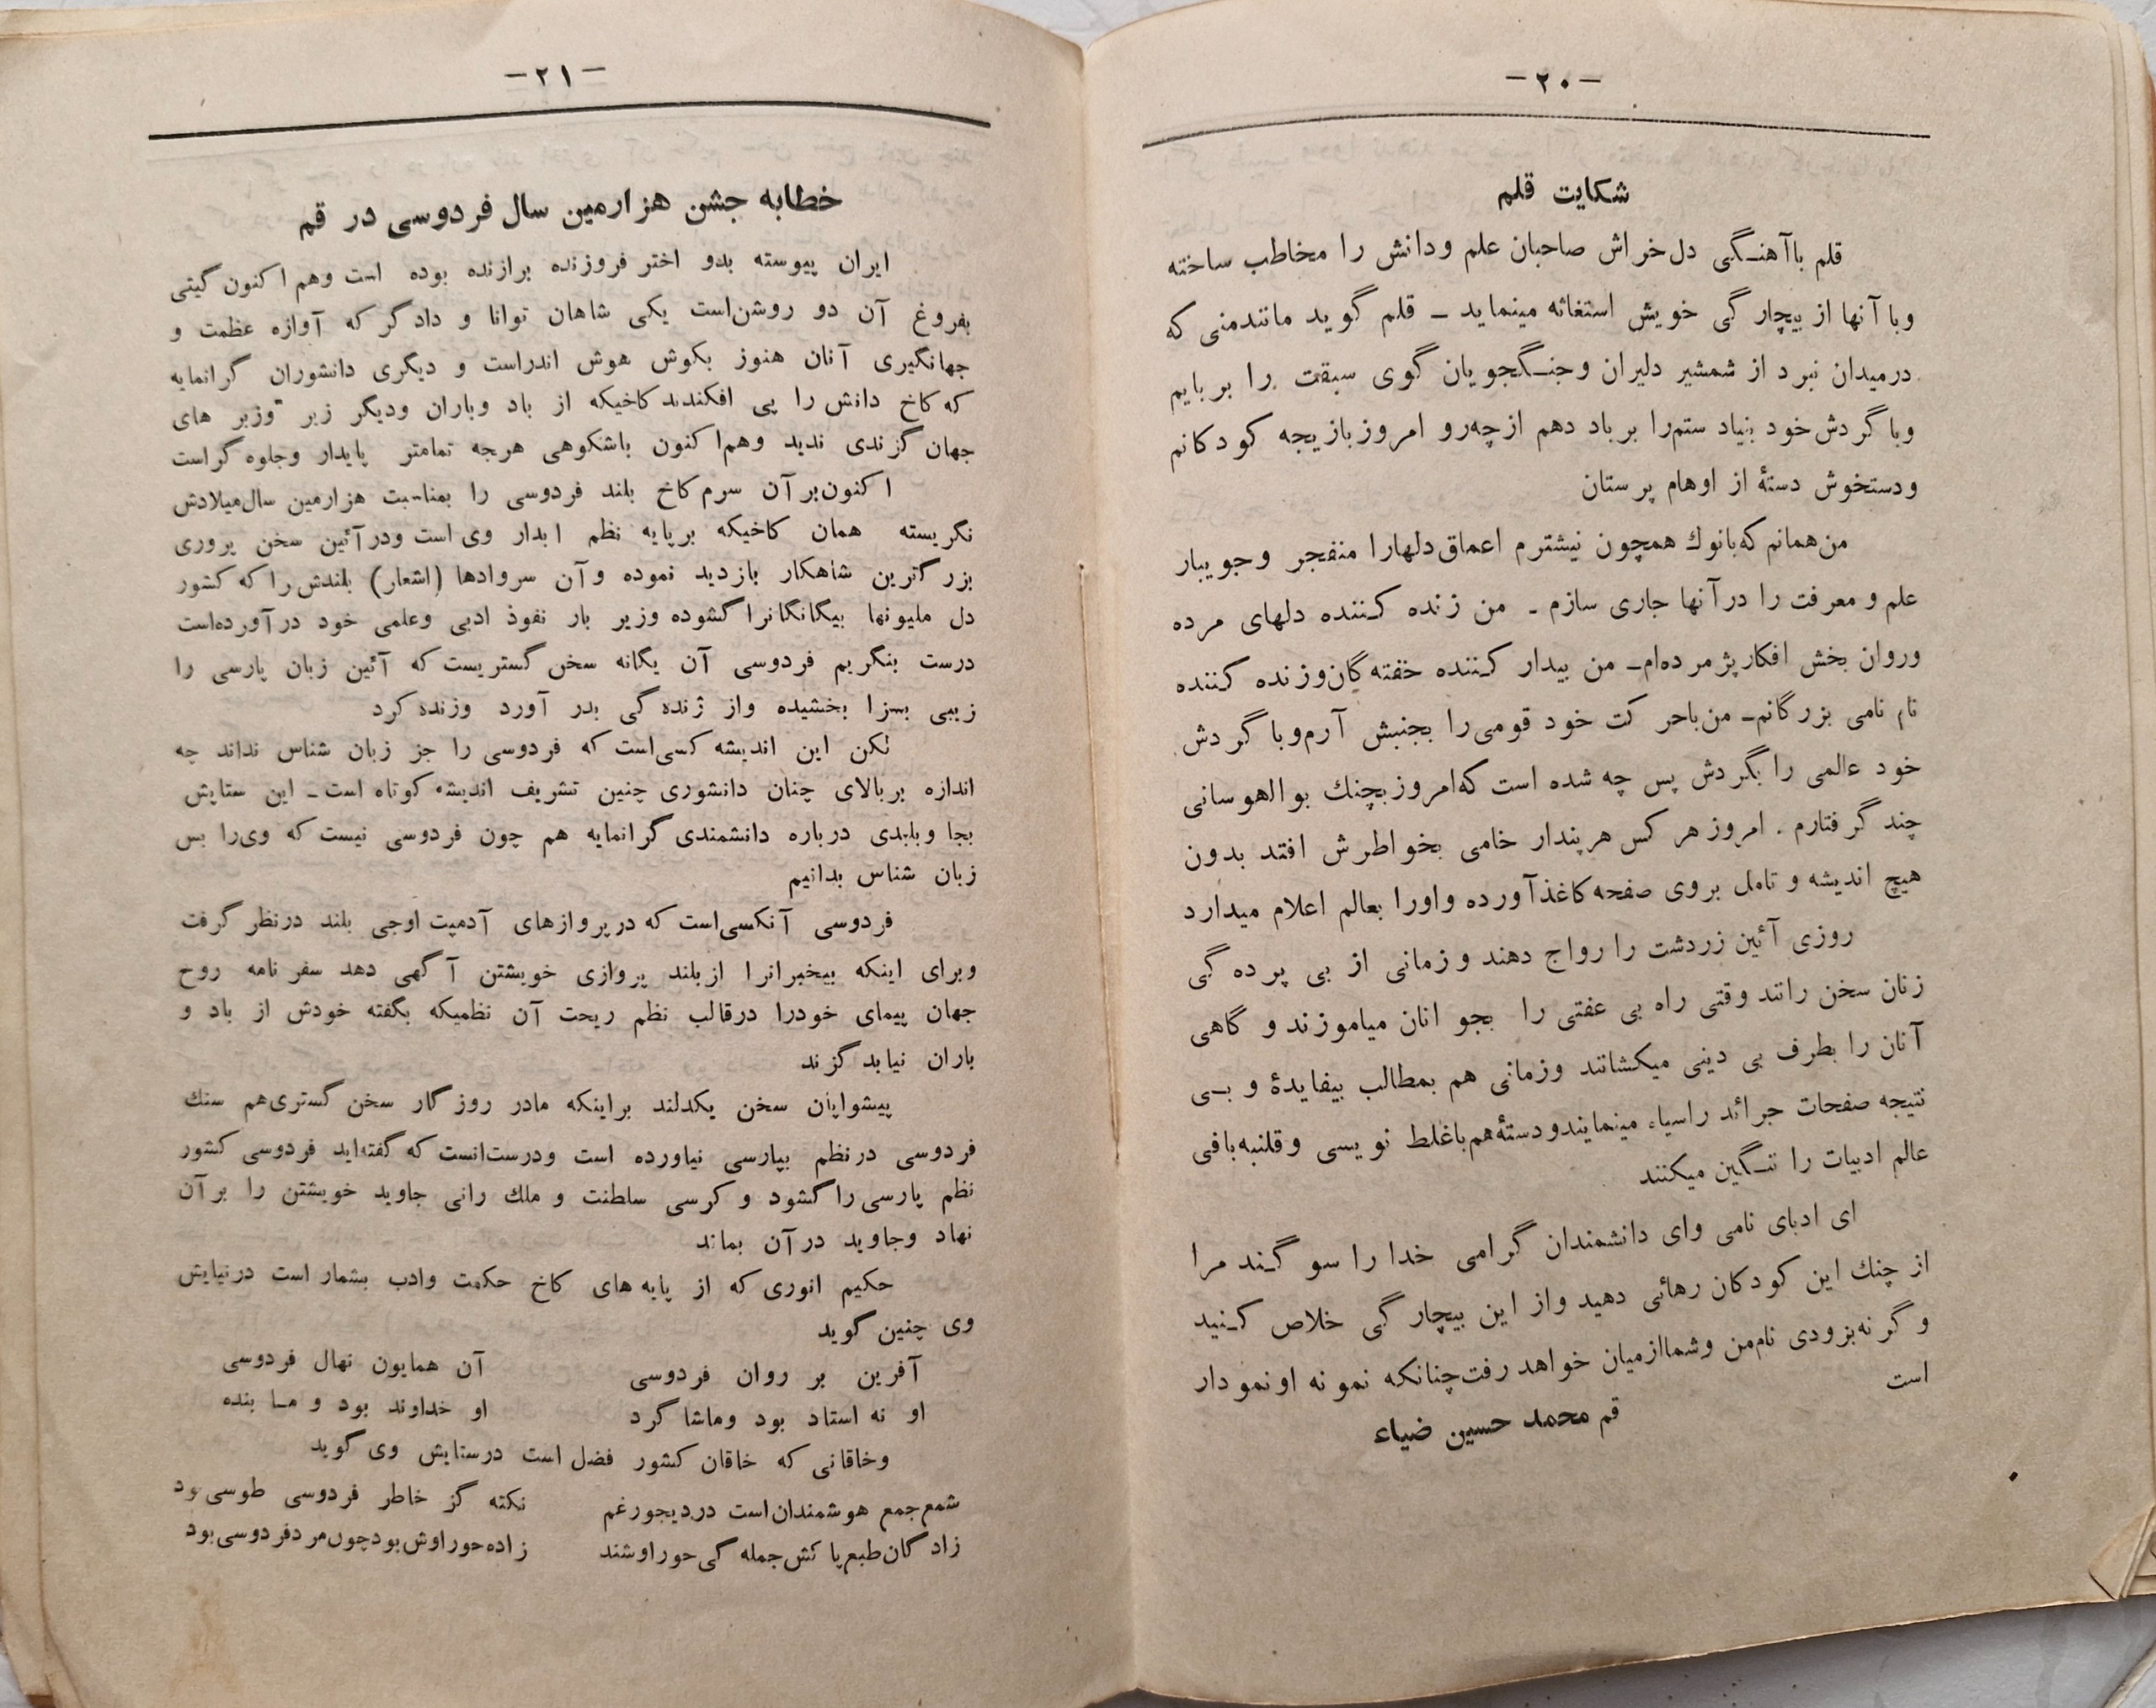 -۲۰-
شكایت قلم
قلم باآهنگی دل‌خراش صاحبان علم ودانش را مخاطب ساخته
وبا آنها از بیچارگی خویش استغاثه مینماید ــ قلم گوید مانندمنی که
درمیدان نبرد از شمشیر دلیران وجنگجویان گوی سبقت را بربایم
وبا گردش‌خود بنیاد ستم‌را برباد دهم ازچه‌رو امروزبازیچه کودکانم
ودستخوش دستهٔ از اوهام پرستان
من‌همانم که‌بانوك همچون نیشترم اعماق‌دلهارا منفجر وجویبار
علم و معرفت را درآنها جاری سازم ـ من زنده کننده دلهای مرده
وروان بخش افکارپژمرده‌ام‌ـ من بیدار کننده خفته‌گان‌وزنده کننده
نام نامی بزرگانم‌ـ من‌باحرکت خود قومی‌را بجنبش آرم‌وباگردش
خود عالمی را بگردش پس چه شده است که‌امروزبچنك بوالهوسانی
چند گرفتارم . امروز هرکس هرپندار خامی بخواطرش افتد بدون
هیچ اندیشه و تامل بروی صفحه‌کاغذآورده واورا بعالم اعلام میدارد
روزی آئین زردشت را رواج دهند وزمانی از بی پرده‌گی
زنان سخن رانند وقتی راه بی عفتی را بجوانان میاموزند و گاهی
آنان را بطرف بی دینی میکشانند وزمانی هم بمطالب بیفایدهٔ و بـی
نتیجه صفحات جرائد راسیاه مینمایندودستهٔ‌هم‌باغلط نویسی وقلنبه‌بافی
عالم ادبیات را ننگین میکنند
ای ادبای نامی وای دانشمندان گرامی خدا را سوگند مرا
از چنك این کودکان رهائی دهید واز این بیچارگی خلاص کنید
و گرنه‌بزودی نام‌من وشماازمیان خواهد رفت‌چنانکه نمونه اونمودار
است
قم محمد حسین ضیاء
-۲۱-
خطابه جشن هزارمین سال فردوسی در قم
ایران پیوسته بدو اختر فروزنده برازنده بوده است وهم‌اکنون گیتی
بفروغ آن دو روشن‌است یکی شاهان توانا و دادگر که آوازه عظمت و
جهانگیری آنان هنوز بگوش هوش اندراست و دیگری دانشوران گرانمایه
که کاخ دانش را پی افکندند کاخیکه از باد وباران ودیگر زبر وزبر های
جهان گزندی ندید وهم‌اکنون باشکوهی هرچه تمامتر پایدار وجلوه گراست
اکنون‌برآن سرم کاخ بلند فردوسی را بمناسبت هزارمین سال‌میلادش
نگریسته همان کاخیکه برپایه نظم ابدار وی است ودرآئین سخن پروری
بزرگترین شاهکار بازدید نموده و آن سروادها (اشعار) بلندش را که کشور
دل ملیونها بیگانگانرا گشوده وزیر بار نفوذ ادبی وعلمی خود درآورده‌است
درست بنگریم فردوسی آن یگانه سخن گستریست که آئین زبان پارسی را
زیبی بسزا بخشیده واز ژنده‌گی بدر آورد وزنده کرد
لکن این اندیشه کسی‌است که فردوسی را جز زبان شناس نداند چه
اندازه بربالای چنان دانشوری چنین تشریف اندیشه کوتاه است ـ این ستایش
بجا و درباره دانشمندی گرانمایه هم چون فردوسی نیست که وی‌را بس
زبان شناس بدانیم
فردوسی آنکسی‌است که درپروازهای آدمیت اوجی بلند درنظر گرفت
وبرای اینکه بیخبرانرا ازبلند پروازی خویشتن آگهی دهد سفرنامه روح
جهان پیمای خودرا درقالب نظم ریحت آن نظمیکه بگفته خودش از باد و
باران نیابد گزند
پیشوایان سخن یکدلند براینکه مادر روزگار سخن گستری‌هم سنك
فردوسی درنظم بپارسی نیاورده است ودرست‌انست که گفته‌اید فردوسی کشور
نظم پارسی را گشود و کرسی سلطنت و ملك رانی جاوید خویشتن را برآن
نهاد وجاوید درآن بماند
حکیم انوری که از پایه های کاخ حکمت وادب بشمار است درنیایش
وی چنین گوید
آفرین بر روان فردوسی آن همایون نهال فردوسی
او نه استاد بود وماشاگرد او خداوند بود و مـا بنده
وخاقانی که خاقان کشور فضل است درستایش وی گوید
شمع‌جمع هوشمندان‌است دردیجورغم نکته گز خاطر فردوسی طوسی بود
زادگان‌طبع‌پاکش‌جمله گی‌حوراوشند زاده‌حوراوش‌بودچون‌مردفردوسی‌بود